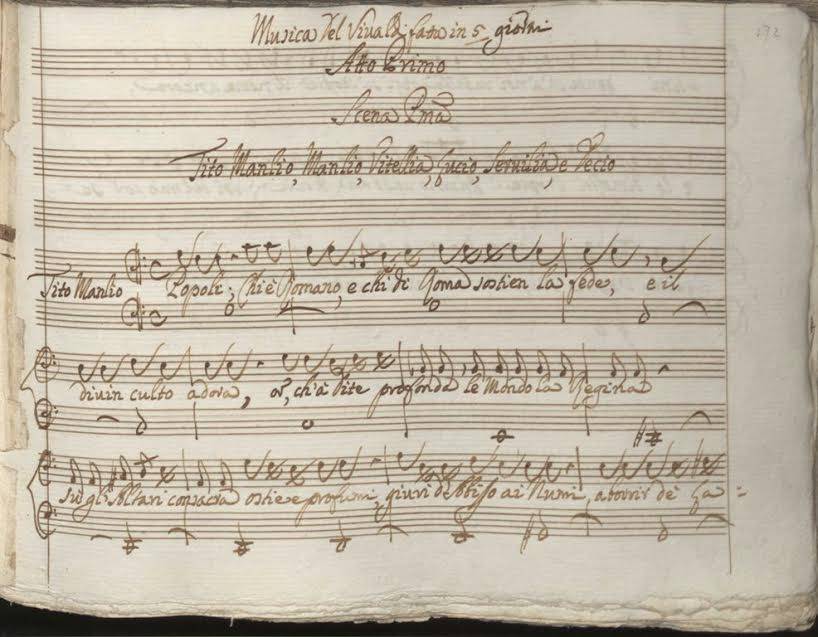 Musica del Vivaldi fatta in 5 giorni
172
Atto Primo
Scena Pma
Tito Manlio, Manlio, Vitellia, Lucio, Servilia, e Decio
Tito Manlio Popoli; Chi è Romano, e chi di Roma sostien la fede, e il
divin culto adora, or, ch'à Dite profonda le Mondo la Regina
su gli Altari consacra ostie e profumi, giuri d' Abisso ai Numi, aborrir de' La=